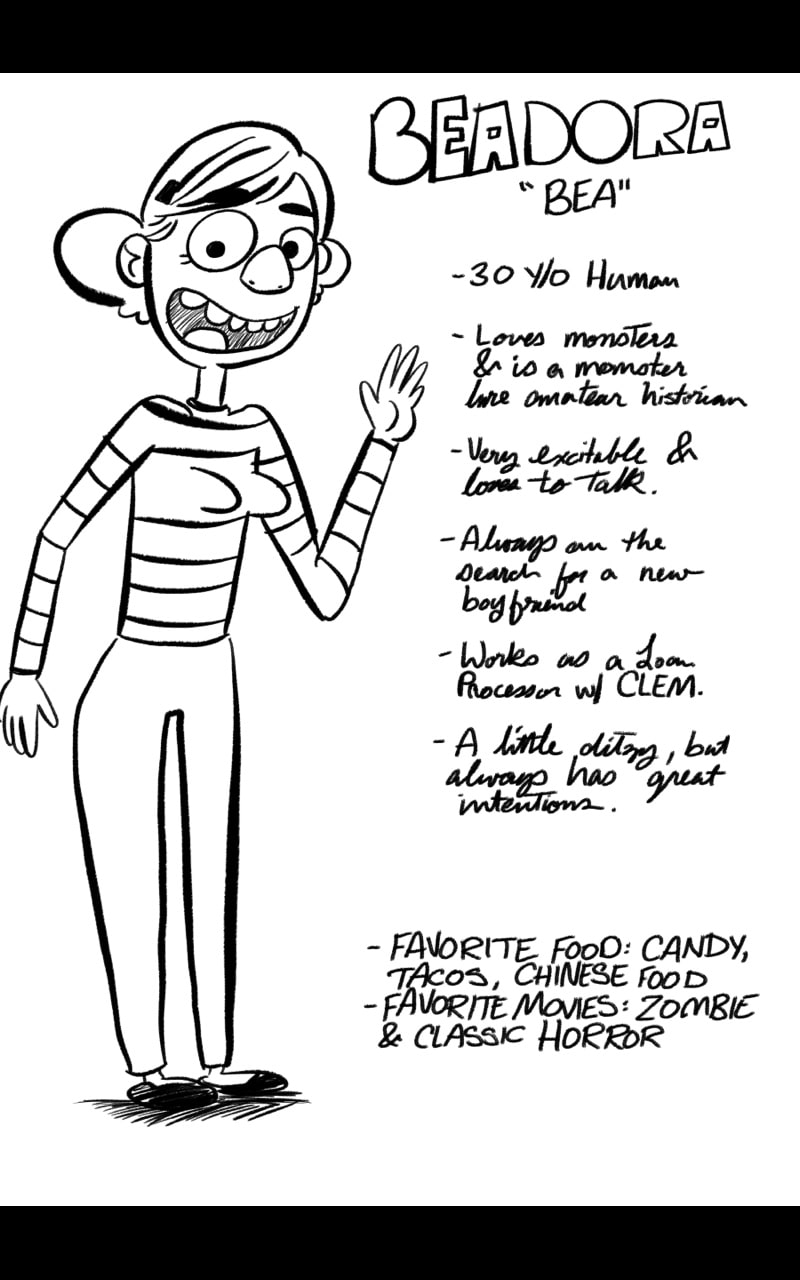 BEADORA
"BEA"
- 30 Y/O Human
- Loves monsters
& is a momster
lore amatear historian
- Very excitable &
loves to Talk.
- Always on the
search for a new
boyfriend
- Works as a Loan
Processor w/ CLEM.
- A little ditzy, but
always has great
intentions.
- FAVORITE FOOD: CANDY,
TACOS, CHINESE FOOD
- FAVORITE MOVIES: ZOMBIE
& CLASSIC HORROR